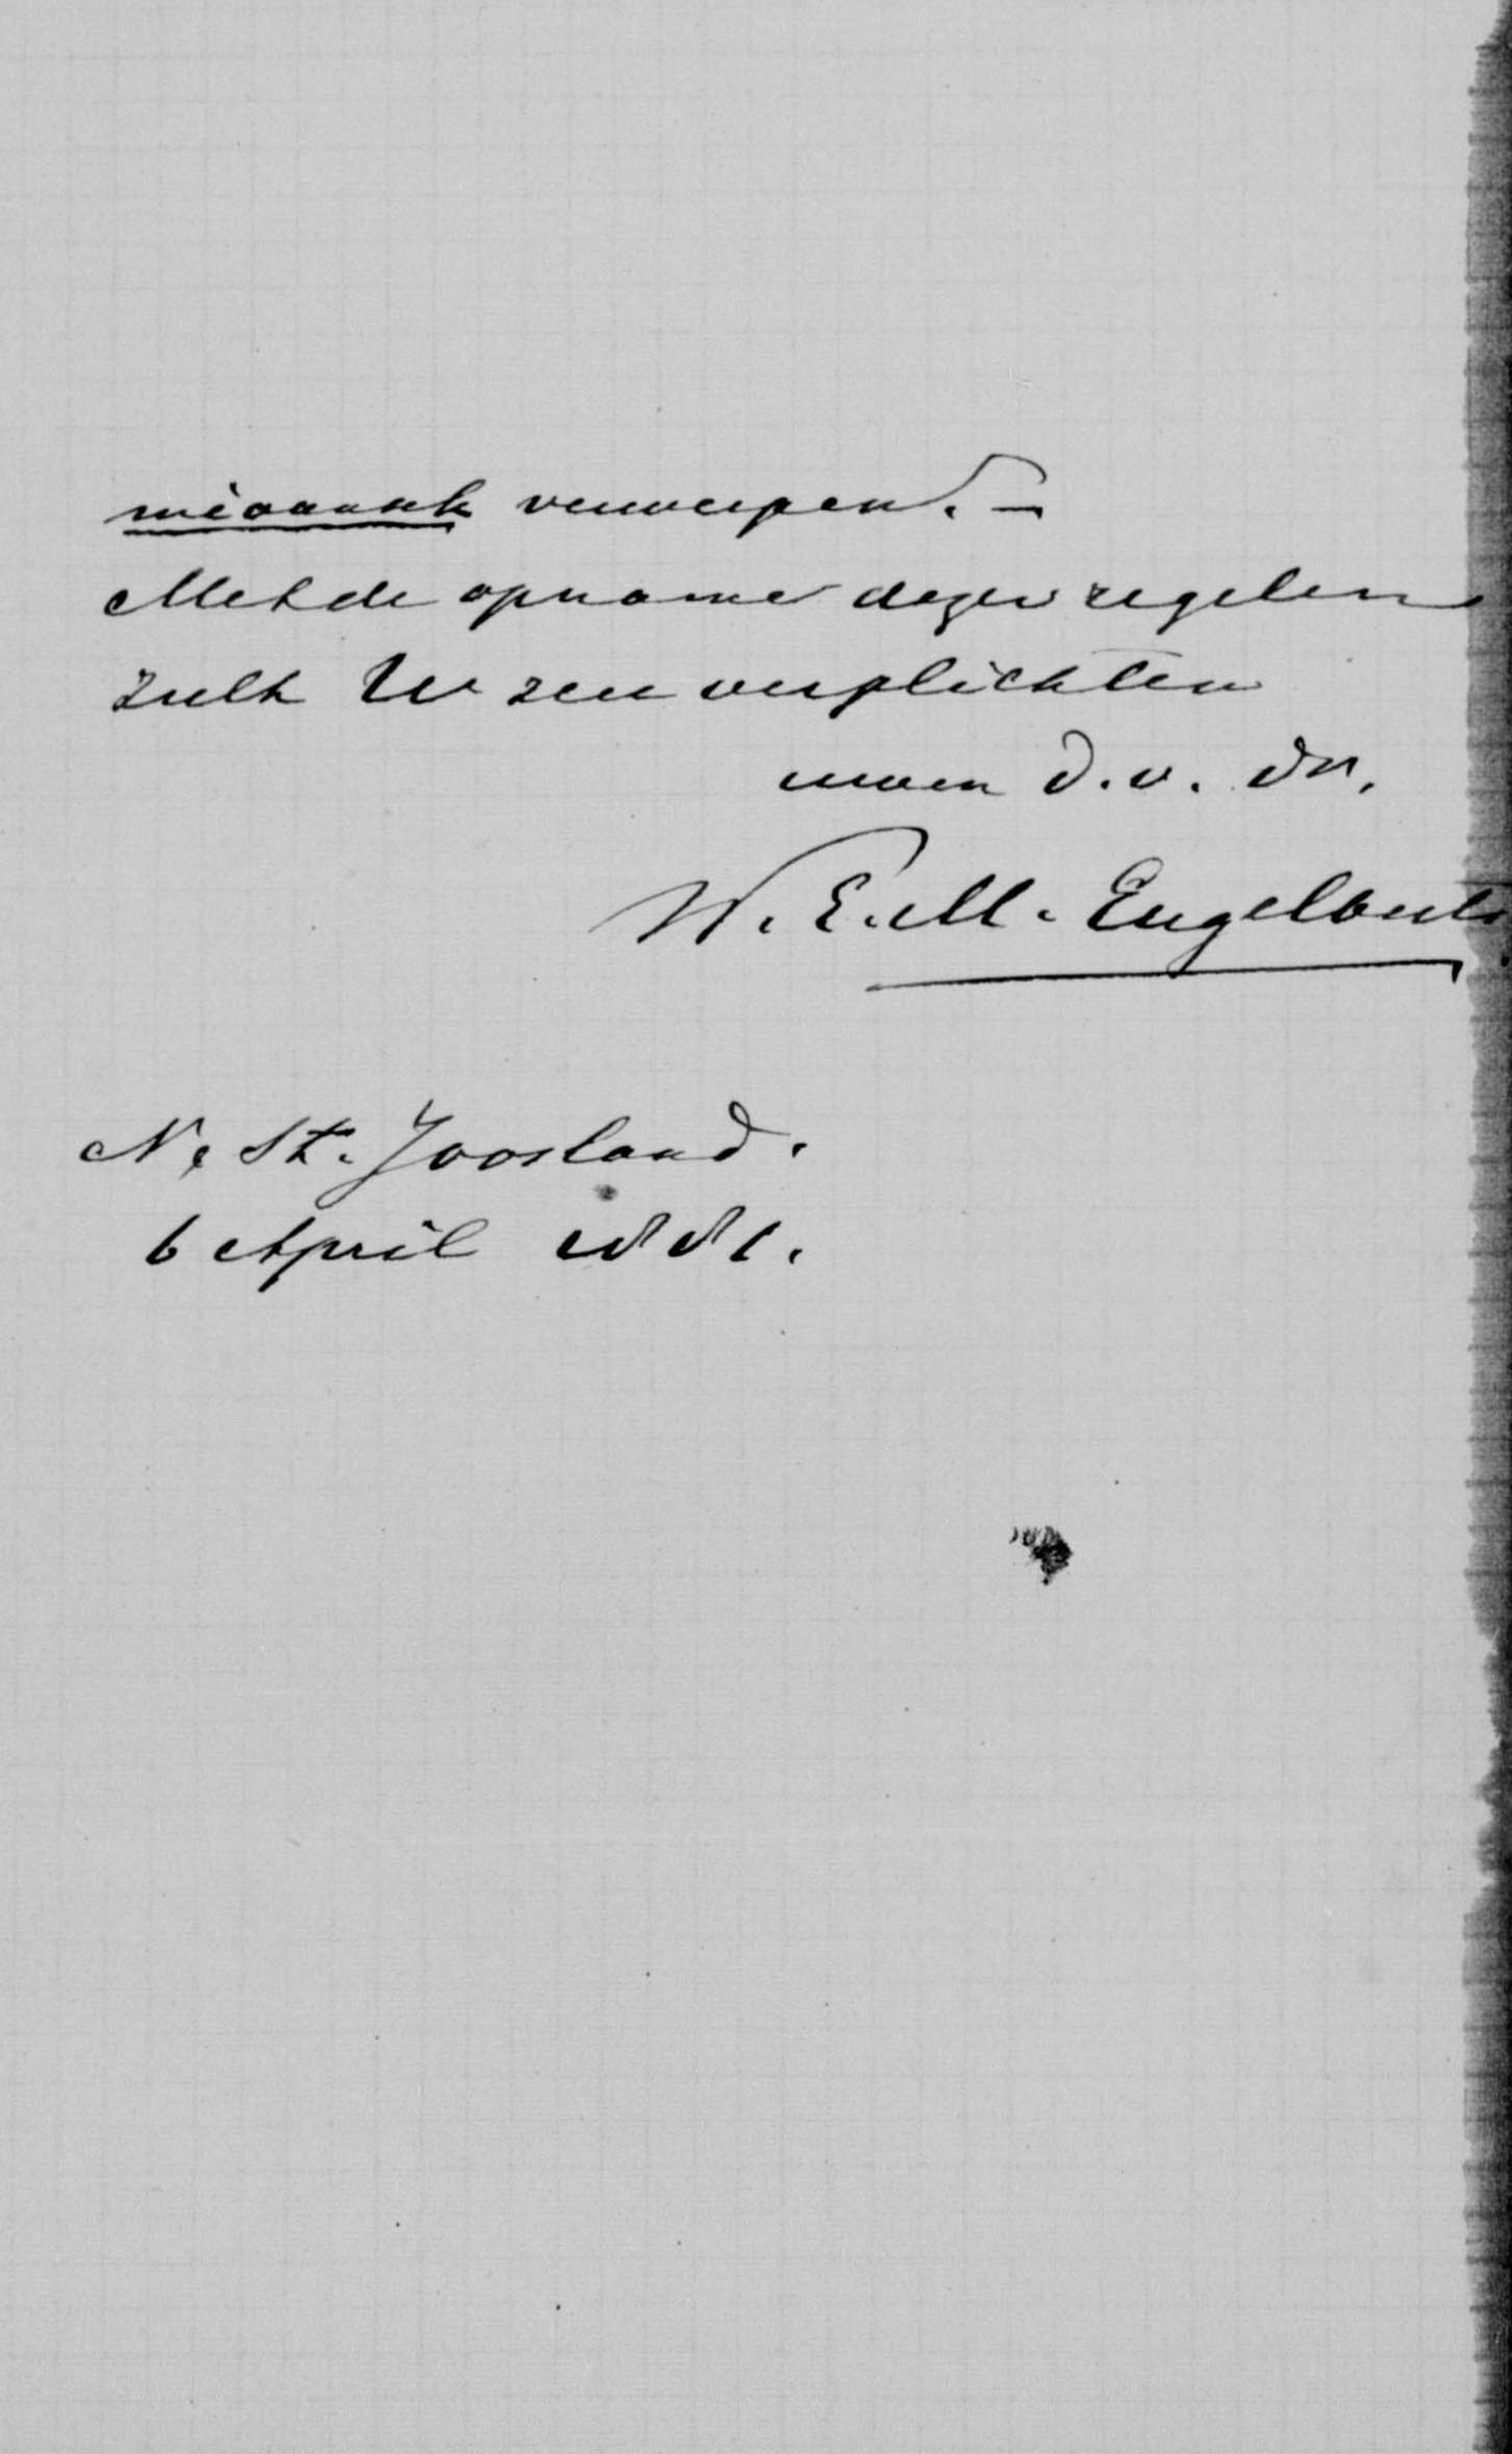 verwerpen. —
Met de opname dezer regelen
zult U zeer verplichten
uwen d.v. dr.
W. E. M. Engelberts
N. St. Joosland.
6 April 1881.